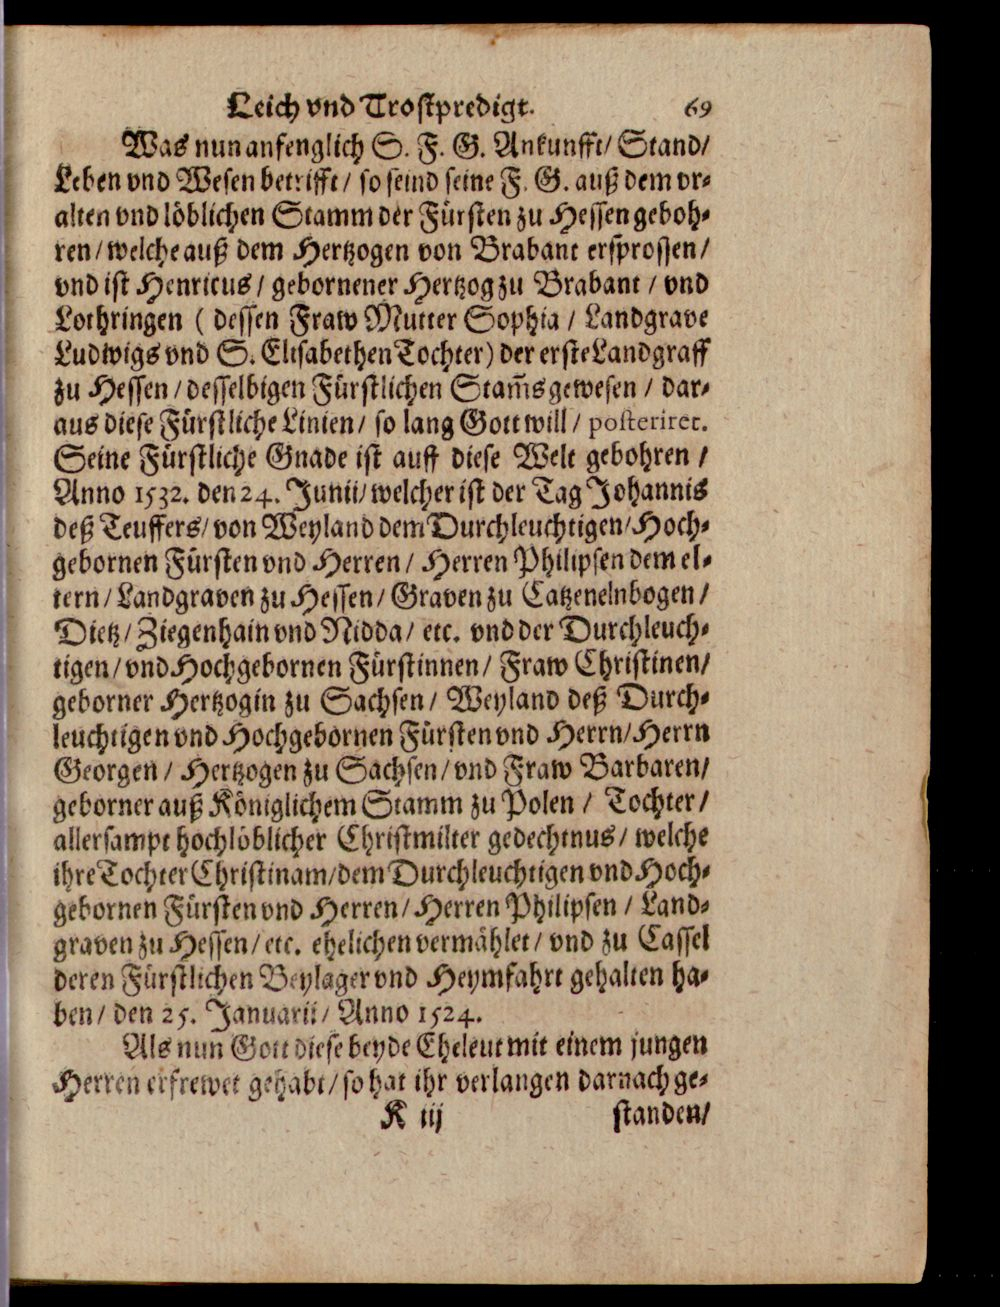 Leich vnd Trostpredigt. 69
Was nun anfenglich S. F. G. Ankunfft/ Stand/
Leben vnd Wesen betrifft/ so seind seine F. G. auß dem vr-
alten vnd löblichen Stamm der Fürsten zu Hessen geboh-
ren/ welche auß dem Hertzogen von Brabant ersprossen/
vnd ist Henricus/ gebornener Hertzog zu Brabant/ vnd
Lothringen ( dessen Fraw Mutter Sophia/ Landgrave
Ludwigs vnd S. Elisabethen Tochter) der erste Landgraff
zu Hessen/ desselbigen Fürstlichen Stam̃s gewesen/ dar-
aus diese Fürstliche Linien/ so lang Gott will/ posteriret.
Seine Fürstliche Gnade ist auff diese Welt gebohren/
Anno 1532. den 24. Junii/ welcher ist der Tag Johannis
deß Teuffers/ von Weyland dem Durchleuchtigen/ Hoch-
gebornen Fürsten vnd Herren/ Herren Philipsen dem el-
tern/ Landgraven zu Hessen/ Graven zu Catzenelnbogen/
Dietz/ Ziegenhain vnd Nidda/ etc. vnd der Durchleuch-
tigen/ vnd Hochgebornen Fürstinnen/ Fraw Christinen/
geborner Hertzogin zu Sachsen/ Weyland deß Durch-
leuchtigen vnd Hochgebornen Fürsten vnd Herrn/ Herrn
Georgen/ Hertzogen zu Sachsen/ vnd Fraw Barbaren/
geborner auß Königlichem Stamm zu Polen/ Tochter/
allersampt hochlöblicher Christmilter gedechtnus/ welche
ihre Tochter Christinam/ dem Durchleuchtigen vnd Hoch-
gebornen Fürsten vnd Herren/ Herren Philipsen/ Land-
graven zu Hessen/ etc. ehelichen vermählet/ vnd zu Cassel
deren Fürstlichen Beylager vnd Heymfahrt gehalten ha-
ben/ den 25. Januarii/ Anno 1524.
Als nun Gott diese beyde Eheleut mit einem jungen
Herren erfrewet gehabt/ so hat ihr verlangen darnach ge-
K iij standen/